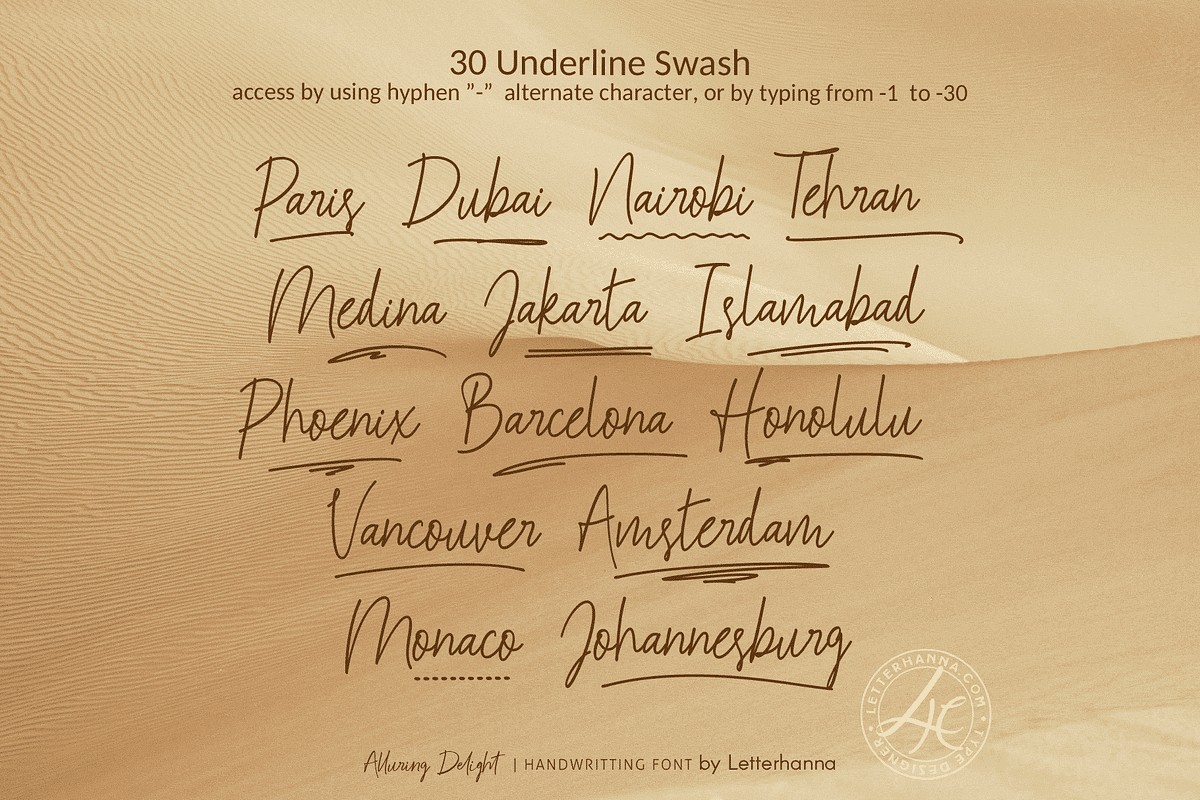 30 Underline Swash
access by using hyphen ”-” alternate character, or by typing from -1 to -30
Paris Dubai Nairobi Tehran
Medina Jakarta Islamabad
Phoenix Barcelona Honolulu
Vancouver Amsterdam
Monaco Johannesburg
LETTERHANNA.COM • TYPE DESIGNER •
LH
Alluring Delight | HANDWRITTING FONT by Letterhanna